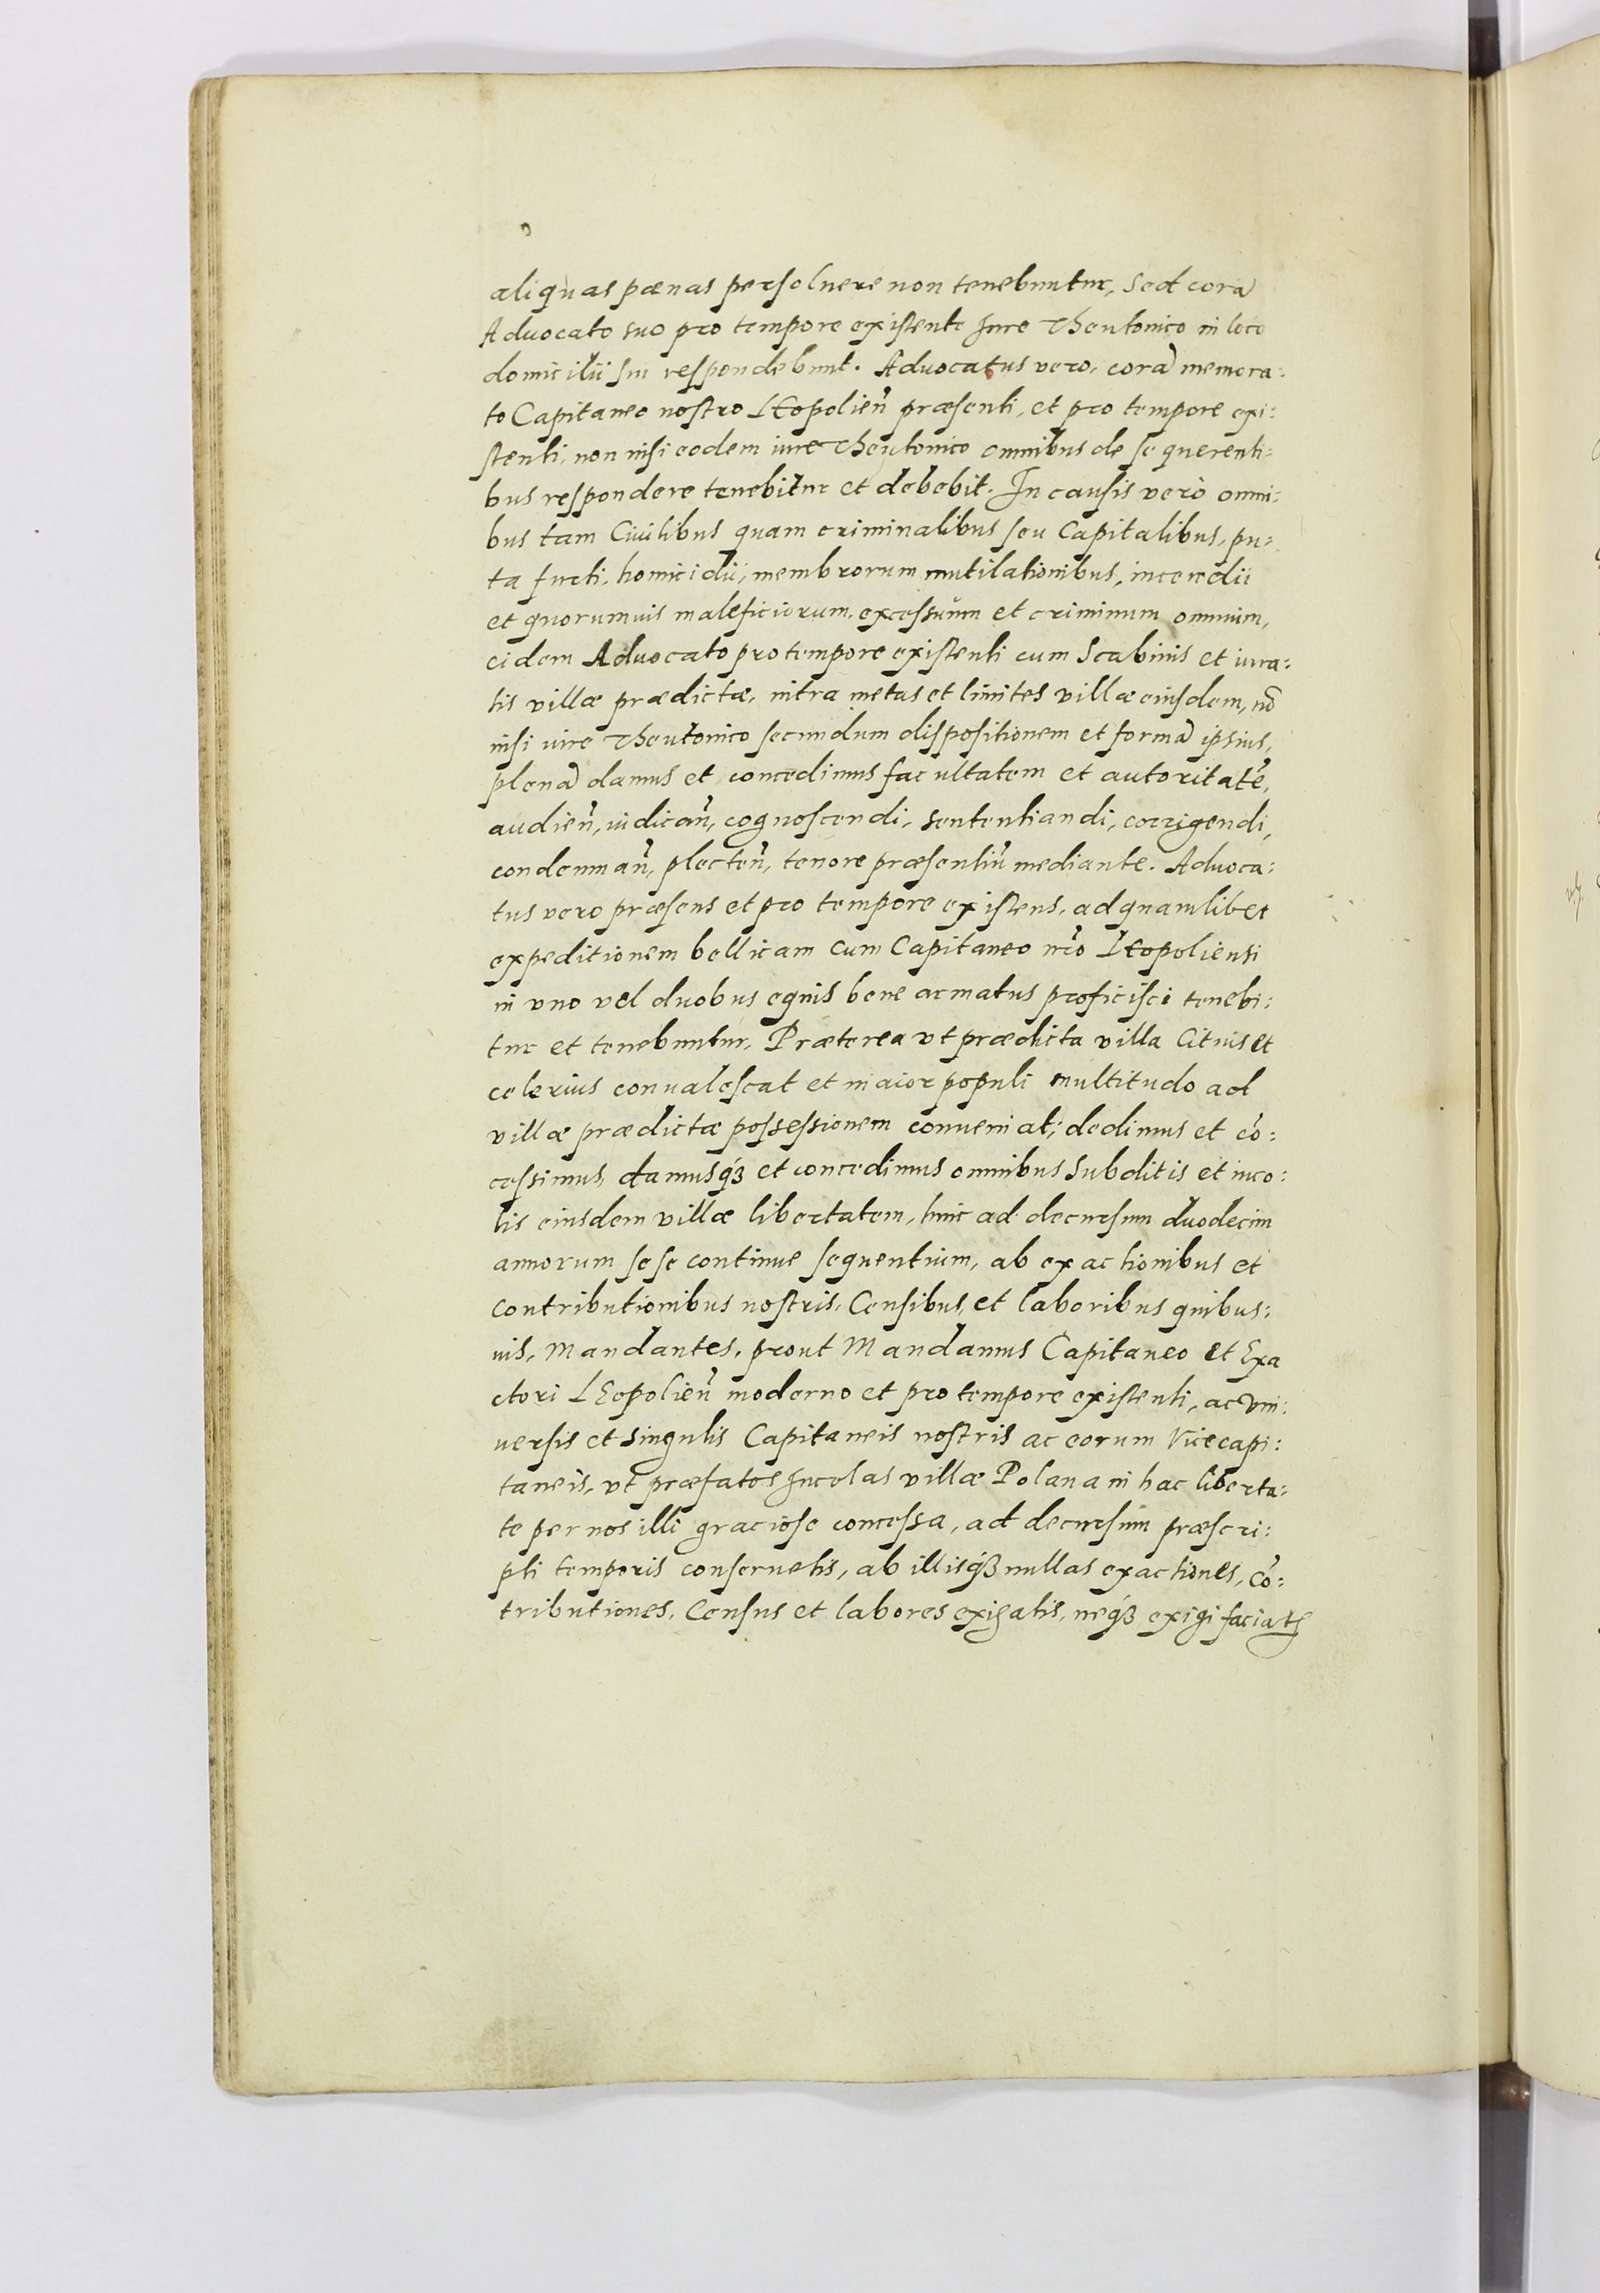 aliquas pœnas persoluere non tenebuntur, Sed corā
Aduocato suo pro tempore existente Jure Theutonico in loco
domicilii sui respondebunt. Aduocatus vero, corā memora:
to Capitaneo nostro LEopolien̄ præsenti, et pro tempore exi:
stenti, non nisi eodem iure Theutonico omnibus de se querenti:
bus respondere tenebitur et debebit. In causis verò omni:
bus tam Ciuilibus quam criminalibus seu Capitalibus, pu:
ta furti, homicidii, membrorum mutilationibus, incendii
et quorumuis maleficiorum, excessuum et criminum omnium,
eidem Aduocato pro tempore existenti cum Scabinis et iura:
tis villæ prædictæ, intra metas et limites villæ eiusdem, nō
nisi iure Theutonico secundum dispositionem et formā ipsius,
plenā damus et concedimus facultatem et autoritatē,
audien̄, iudican̄, cognoscendi, sententiandi, corrigendi,
condemnan̄, plecten̄, tenore præsentiū mediante. Aduoca:
tus vero præsens et pro tempore existens, ad quamlibet
expeditionem bellicam cum Capitaneo nr̄o LEopoliensi
in vno vel duobus equis bene armatus proficisci tenebi:
tur et tenebuntur. Præterea vt prædicta villa Citius et
celerius conualescat et maior populi multitudo ad
villæ prædictæ possessionem conueniat; dedimus et cō:
cessimus, damusq́ꝫ et concedimus omnibus Subditis et inco:
lis eiusdem villæ libertatem, hinc ad decursum duodecim
annorum sese continue sequentium, ab exactionibus et
contributionibus nostris, Censibus, et laboribus quibus:
uis, Mandantes, prout Mandamus Capitaneo et Exa
ctori LEopolien̄ moderno et pro tempore existenti, ac vni:
uersis et singulis Capitaneis nostris ac eorum Vicecapi:
taneis, vt præfatos Jncolas villæ Polana in hac liberta:
te per nos illi graciose concessa, ad decursum præscri:
pti temporis conseruetis, ab illisq́ꝫ nullas exactiones, cō:
tributiones, Census et labores exigatis, neq́ꝫ exigi faciatis